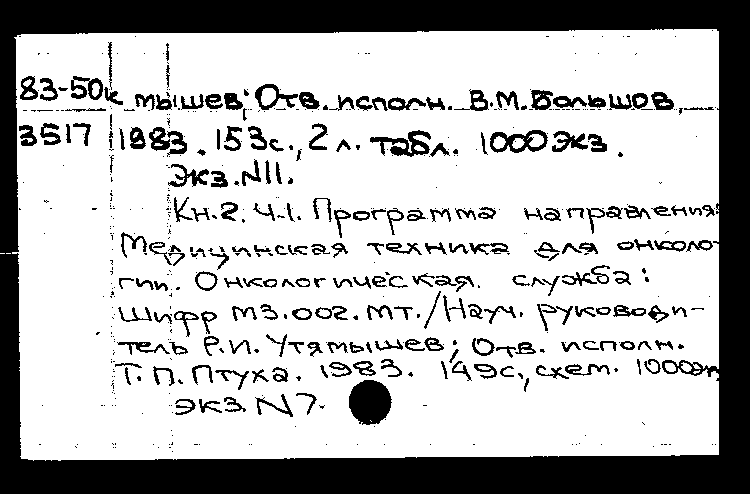 83-50к мышев; Отв. исполн. В.М.Большов,
3517 1983. 153с., 2 л. табл. 1000 экз.
Экз.N11.
Кн.2. Ч-1. Программа направления:
Медицинская техника для онколо-
гии. Онкологическая служба:
Шифр МЗ.002.МТ./Науч. руководи-
тель Р.И. Утямышев; Отв. исполн.
Т.П. Птуха. 1983. 149с., схем. 1000эк
экз. N7.